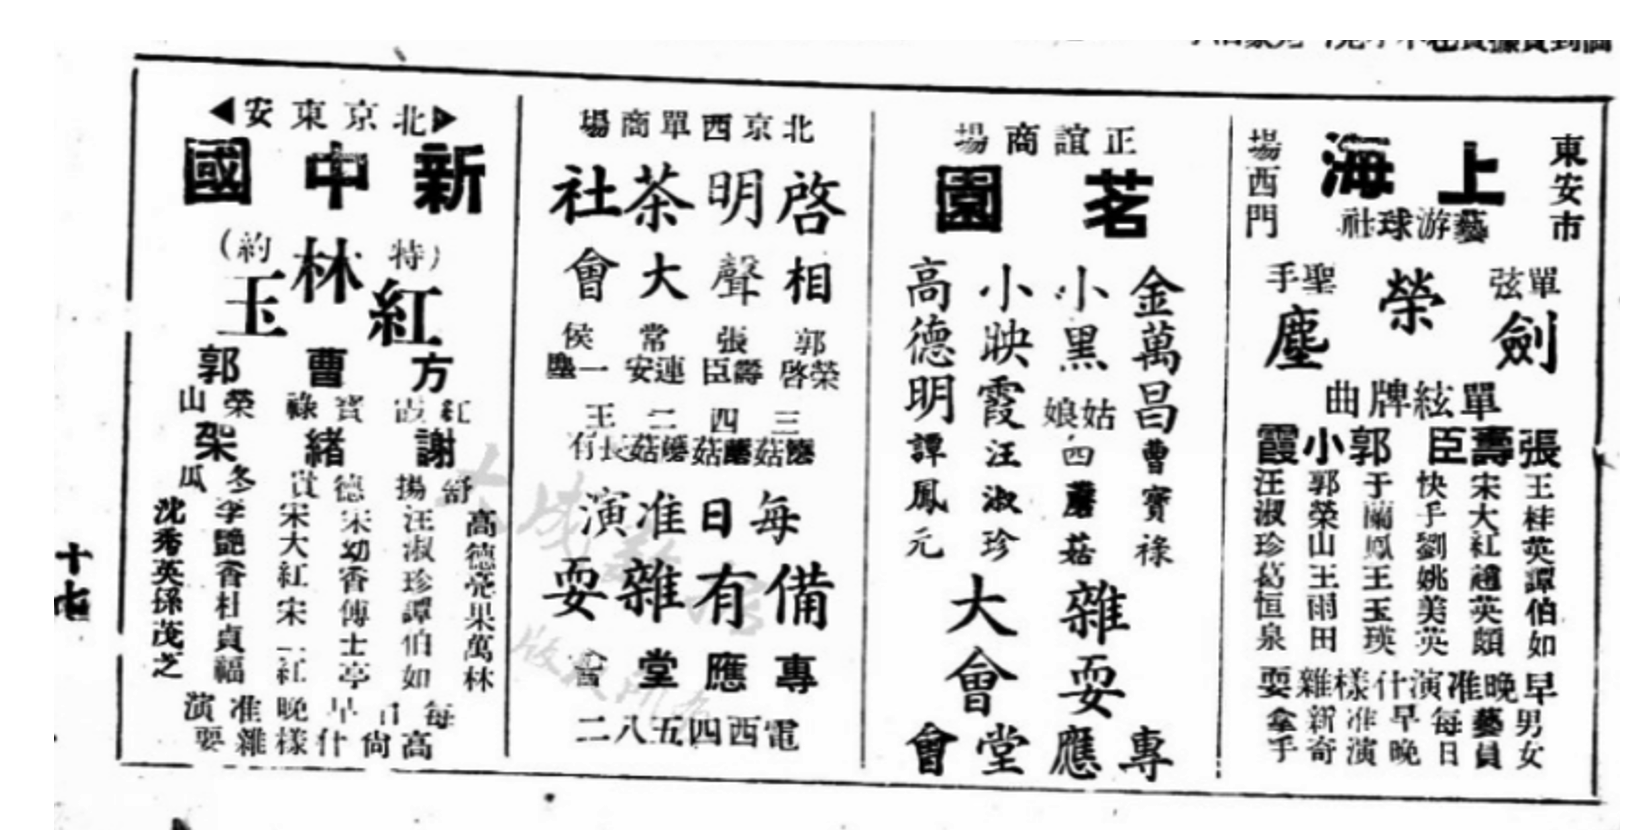 東安市
場西門
上海
藝游球社
單弦
聖手
榮劍塵
單絃牌曲
張壽臣
郭小霞
王桂英譚伯如
宋大紅趙英頗
快手劉姚美英
于蘭鳳王玉瑛
郭榮山王雨田
汪淑珍葛恒泉
早晚准演什樣雜耍
男女藝員每日早晚准演新奇拿手
正誼商場
茗園
金萬昌
小黑姑娘
小映霞
高德明
曹寶祿
四蘑菇
汪淑珍
譚鳳元
雜耍大會
專應堂會
北京西單商場
啓明茶社
相聲大會
郭榮啓
張壽臣
常連安
侯一塵
三蘑菇
四蘑菇
二蘑菇
王長有
每日准演
備有雜耍
專應堂會
電西四五八二
北京東安
新中國
(特約)
林紅玉
方紅霞
曹寶祿
郭榮山
謝舒揚
緒德貴
架冬瓜
高德亮果萬林
汪淑珍譚伯如
宋幼香傅士亭
宋大紅宋一紅
李艷香杜貞福
沈秀英孫茂之
每日早晚准演
高尚什樣雜耍
十七